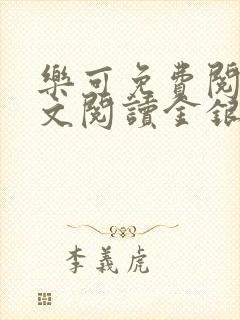 樂可免費閱
文閱讀全銀
李義虎